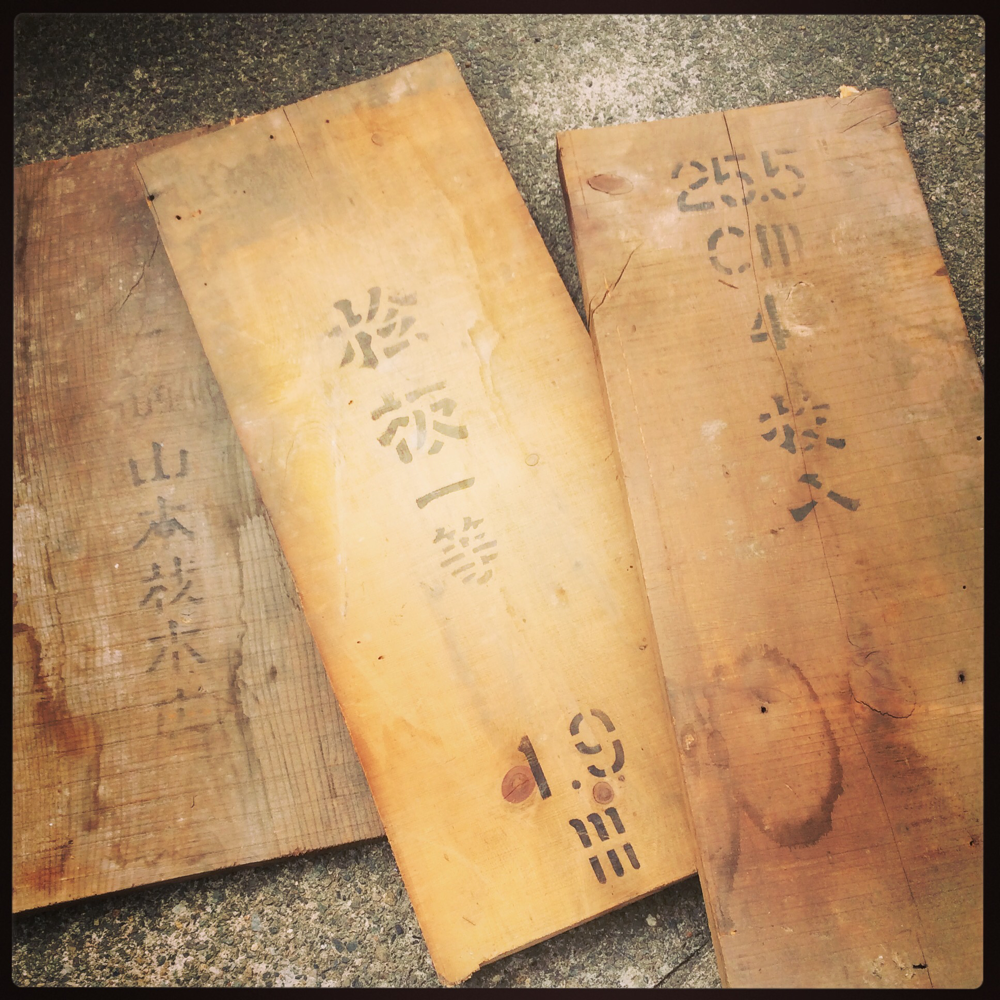 山本材木店
板一等
1.9
mm
25.5
cm
4
枚入